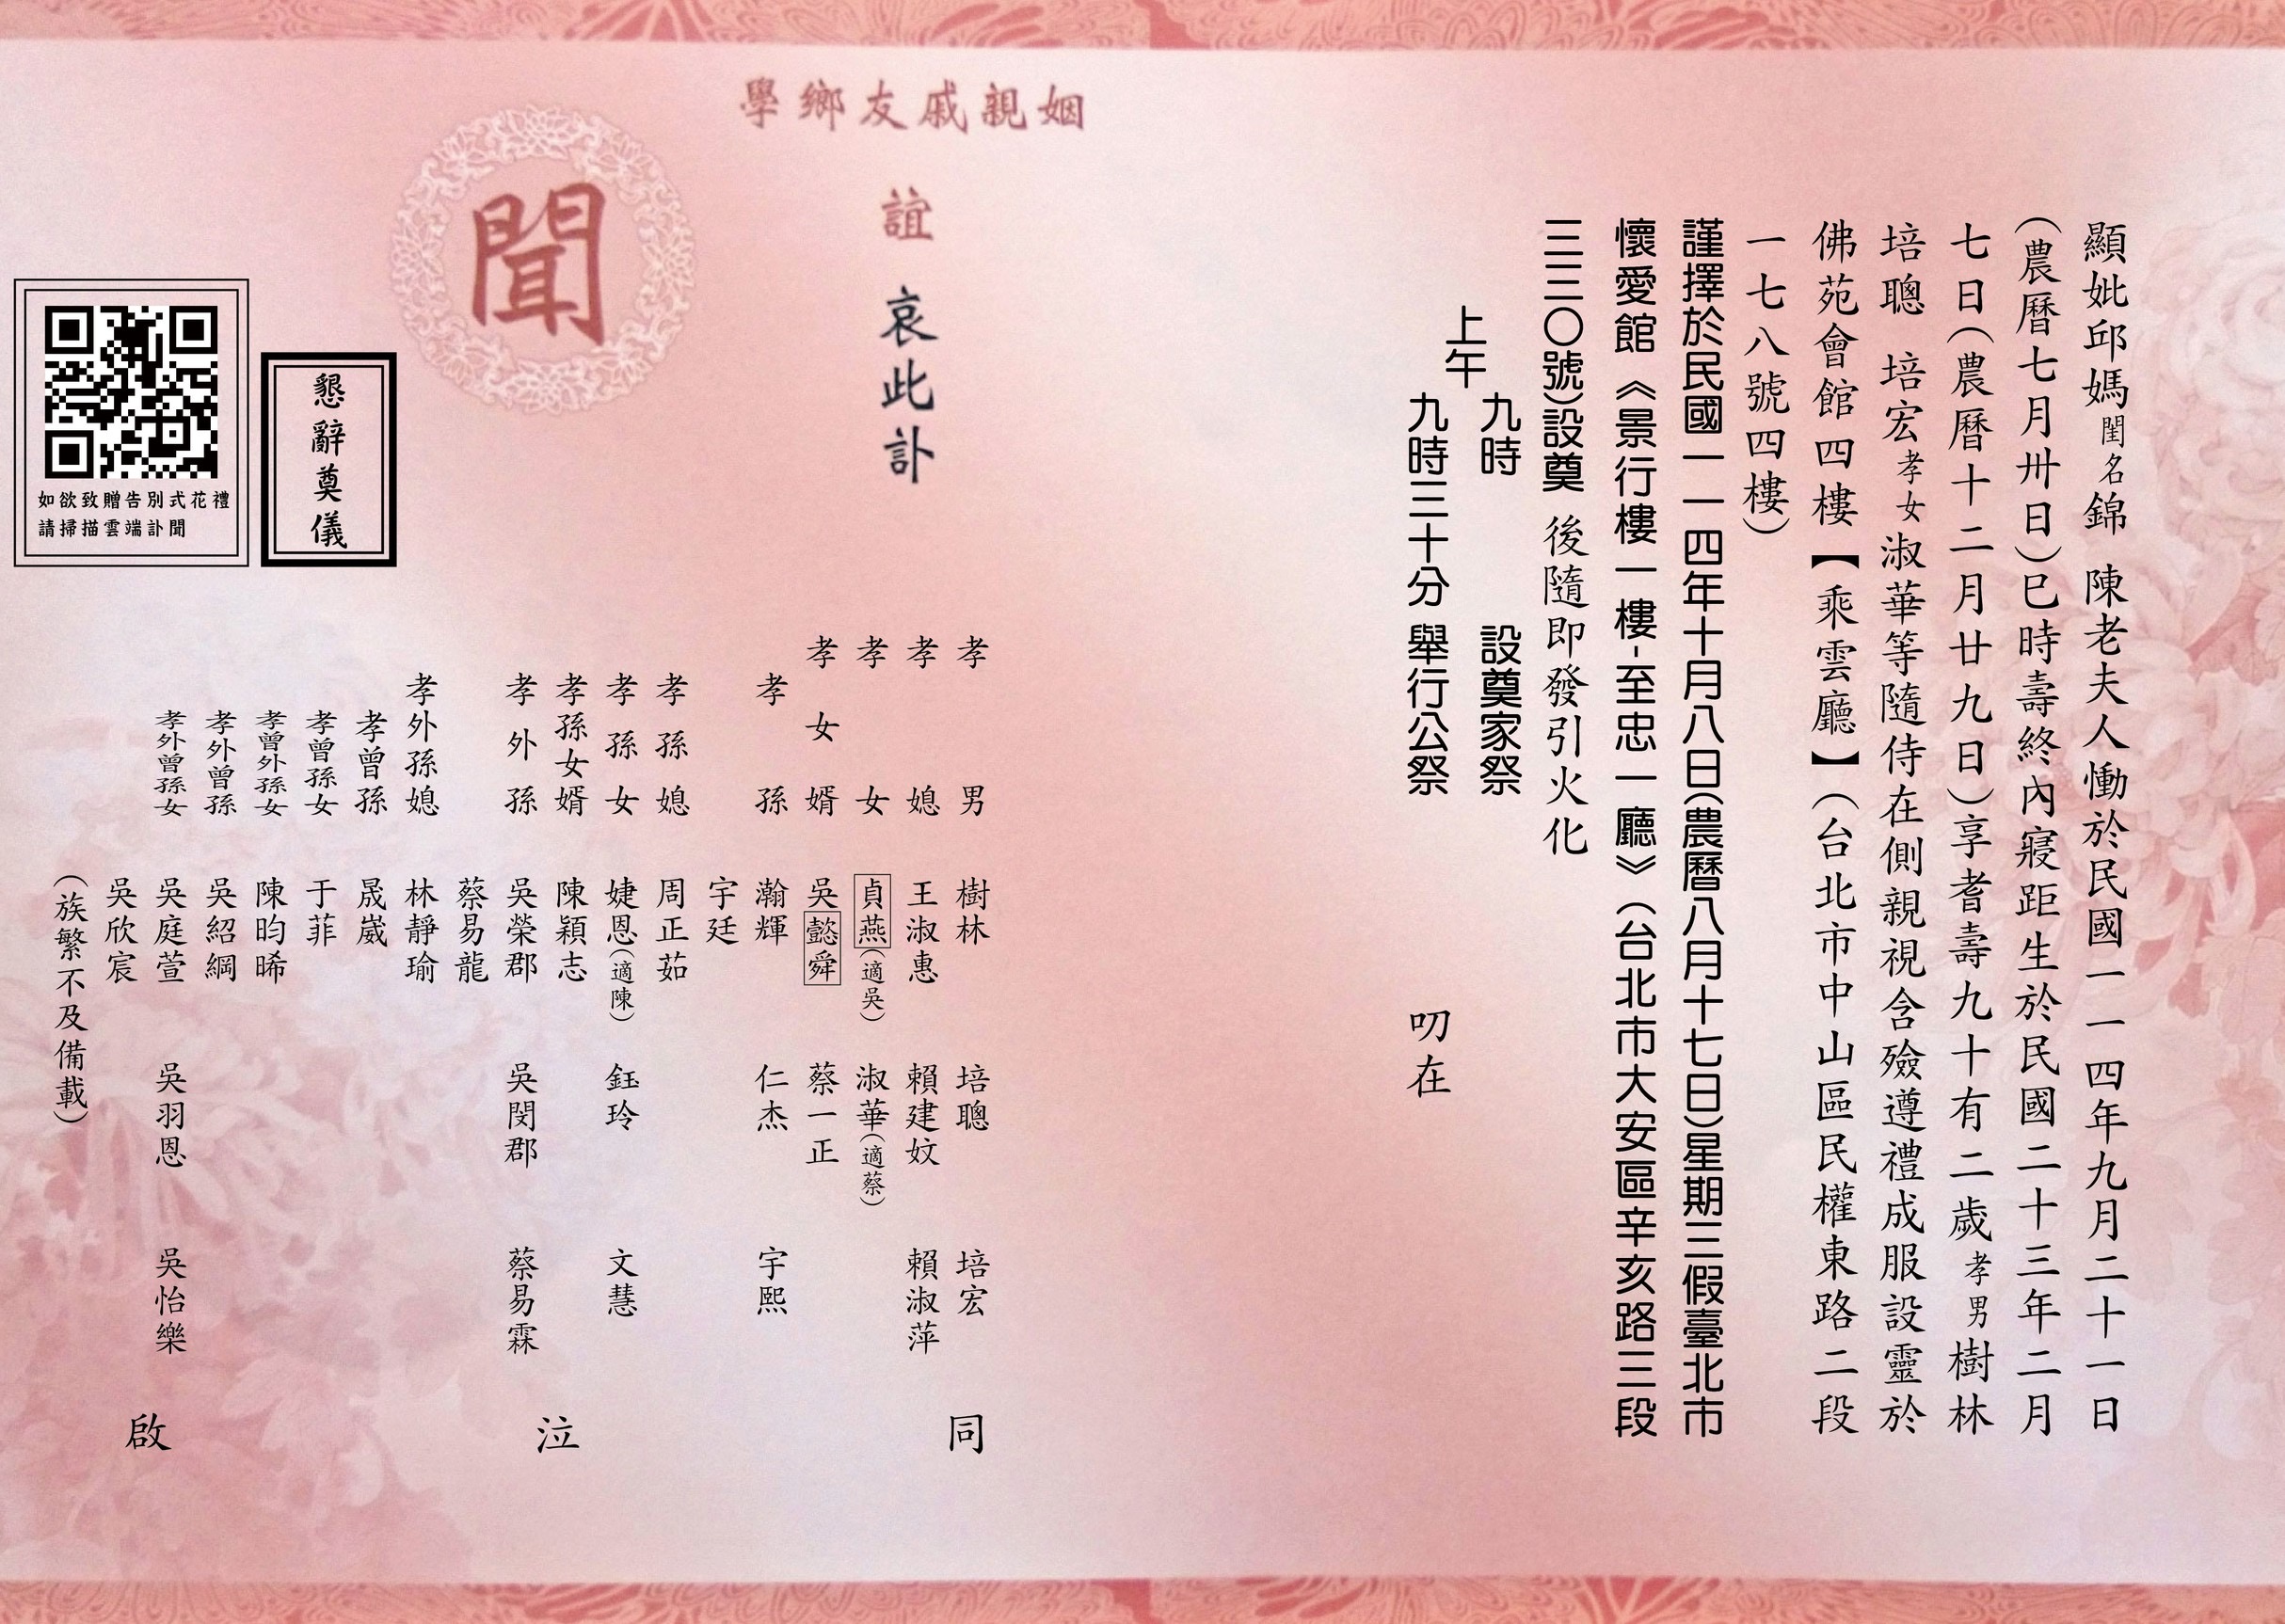 顯妣邱媽閨名錦 陳老夫人慟於民國一一四年九月二十一日
(農曆七月卅日)巳時壽終內寢距生於民國二十三年二月
七日(農曆十二月廿九日)享耆壽九十有二歲孝男樹林
培聰 培宏孝女淑華等隨侍在側親視含殮遵禮成服設靈於
佛苑會館四樓【乘雲廳】(台北市中山區民權東路二段
一七八號四樓)
謹擇於民國一一四年十月八日(農曆八月十七日)星期三假臺北市
懷愛館《景行樓一樓-至忠一廳》(台北市大安區辛亥路三段
三三〇號)設奠 後隨即發引火化
上午
九時 設奠家祭
九時三十分 舉行公祭
叨在
姻親戚友鄉學
誼 哀此訃
聞
懇辭奠儀
如欲致贈告別式花禮
請掃描雲端訃聞
孝男 樹林 培聰 培宏
孝媳 王淑惠 賴建妏 賴淑萍
孝女 貞燕(適吳) 淑華(適蔡)
孝女婿 吳懿舜 蔡一正
孝孫 瀚輝 仁杰 宇熙
宇廷
孝孫媳 周正茹
孝孫女 婕恩(適陳) 鈺玲 文慧
孝孫女婿 陳穎志
孝外孫 吳榮郡 吳閔郡 蔡易霖
蔡易龍
孝外孫媳 林靜瑜
孝曾孫 晟崴
孝曾孫女 于菲
孝曾外孫女 陳昀晞
孝外曾孫 吳紹綱
孝外曾孫女 吳庭萱 吳羽恩 吳怡樂
吳欣宸
(族繁不及備載)
同 泣 啟